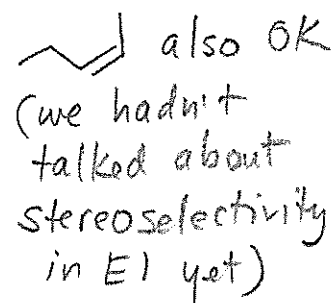 also OK
(we hadn't
talked about
stereoselectivity
in E1 yet)